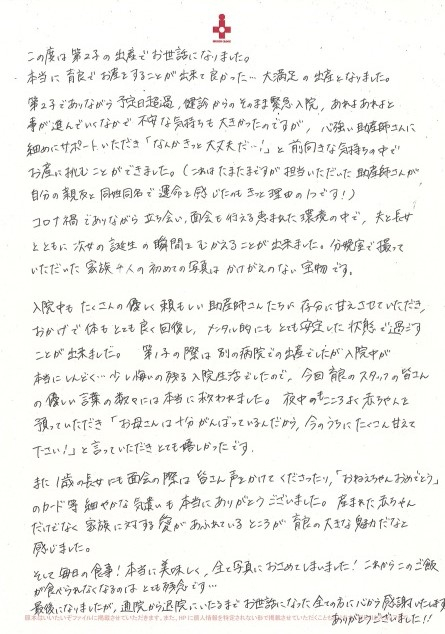 この度は第2子の出産でお世話になりました。
本当に育良でお産をすることが出来て良かった… 大満足の出産となりました。
第2子でありながら予定日超過、健診からのそのまま緊急入院、あれよあれよと
事が進んでいくなかで不安な気持ちも大きかったのですが、心強い助産師さんに
細めにサポートいただき「なんかきっと大丈夫だ…!」と前向きな気持ちの中で
お産に挑むことができました。(これはたまたまですが担当いただいた助産師さんが
自分の親友と同姓同名で運命を感じたのもきっと理由の1つです!)
コロナ禍でありながら立ち会い、面会も行える恵まれた環境の中で、夫と長女
とともに次女の誕生の瞬間をむかえることが出来ました。分娩室で撮って
いただいた家族4人の初めての写真はかけがえのない宝物です。
入院中もたくさんの優しく頼もしい助産師さんたちに存分に甘えさせていただき、
おかげで体もとても良く回復し、メンタル的にもとても安定した状態で過ごす
ことが出来ました。 第1子の際は別の病院での出産でしたが入院中が
本当にしんどく… 少し悔いの残る入院生活でしたので、今回育良のスタッフの皆さん
の優しい言葉の数々には本当に救われました。夜中もこころよく赤ちゃんを
預っていただき「お母さんは十分がんばっているんだから、今のうちにたくさん甘えて
下さい!」と言っていただきとても嬉しかったです。
また1歳の長女にも面会の際は皆さん声をかけてくださったり、「おねえちゃんおめでとう」
のカード等細やかな気遣いも本当にありがとうございました。産まれた赤ちゃん
だけでなく家族に対する愛があふれているところが育良の大きな魅力だなと
感じました。
そして毎日の食事!本当に美味しく、全て写真におさめてしまいました!これからこのご飯
が食べられなくなるのはとても残念です…
最後になりましたが、通院から退院にいたるまでお世話になった全ての方に心から感謝いたします。
ありがとうございました!!